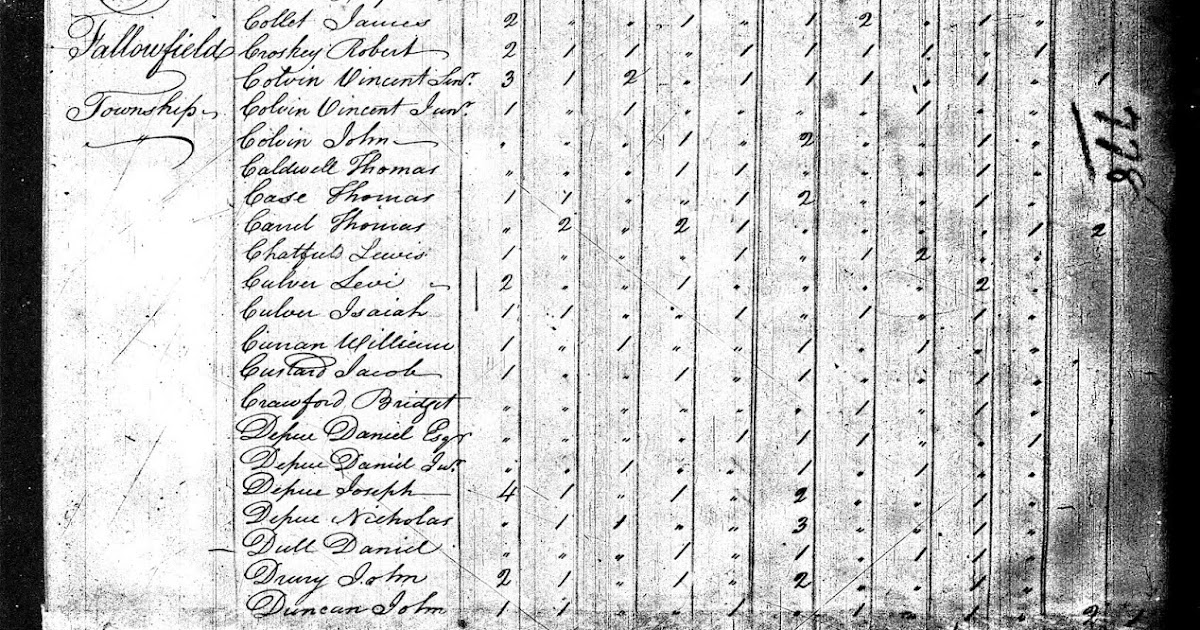 Collet James 2 " " 1 " 1 2 . 1 "
Fallowfield Croskey Robert 2 1 1 " 1 1 1 1 " 1
Colvin Vincent Senr. 3 1 2 . 1 1 1 1 . . 1
Township Colvin Vincent Junr. 1 " 1 . " . . 1 . .
" Colvin John . . . 1 . 2 . . 1 .
Caldwell Thomas " . . 1 1 . . . 1 .
Case Thomas 1 1 . . 1 2 . . 1 .
Carrel Thomas " 2 " 2 1 . . . . 1 2
Lewis 1 " . . 1 . 1 2 . .
Culver Levi 2 . . 1 . . . . 2 .
Culver Isaiah 1 1 . " 1 1 . . 1 .
William 1 . 1 " " 1 . 1 . .
Custard Jacob 1 . " 1 " 1 . . 1 .
Crawford Bridget " . " " " . 1 . 1 .
Depue Daniel Esqr " " " " 1 1 1 " . 1
Depue Daniel Jur. . . 1 . . 1 . 1 . .
Depue Joseph 4 1 " 1 " 2 . . 1 .
Depue Nicholas . 1 1 " " 3 " " 1 .
Dull Daniel " " . 1 " 1 . 1 . .
Drury John 2 1 " 1 " 2 . . 1 .
Duncan John 1 1 . . 1 . 1 . 1 . 2
778